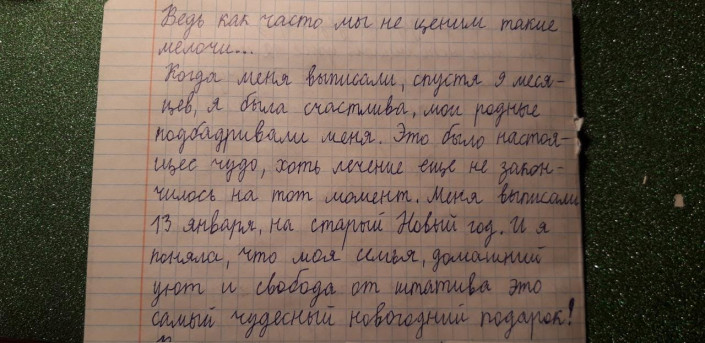 Ведь как часто мы не ценим такие
мелочи...
Когда меня выписали, спустя 9 меся-
цев, я была счастлива, мои родные
подбадривали меня. Это было настоя-
щее чудо, хоть лечение еще не закон-
чилось на тот момент. Меня выписали
13 января, на старый Новый год. И я
поняла, что моя семья, домашний
уют и свобода от штатива это
самый чудесный новогодний подарок!